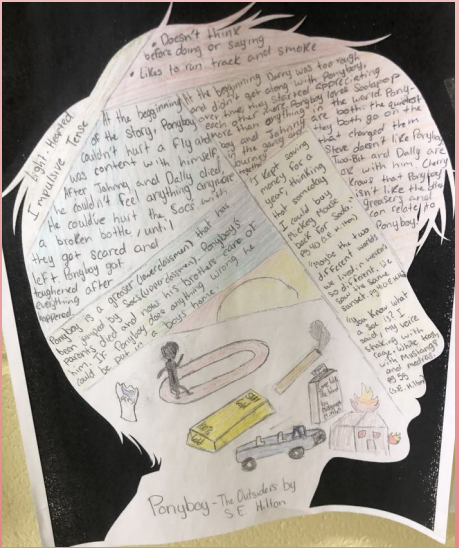 • Doesn't think
before doing or saying
• Likes to run track and smoke
Light-Hearted
Impulsive Tense
At the beginning
of the story, Ponyboy
couldn't hurt a fly and
was content with himself.
After Johnny and Dally died,
he couldn't feel anything anymore
He could've hurt the Socs with
a broken bottle, until
they got scared and
left Ponyboy got
toughened after
everything
happened.
At the beginning Darry was too rough
and didn't get along with Ponyboy,
over time they started appreciating
each other more. Ponyboy loves Sodapop
more than anything in the world. Pony-
boy and Johnny are both the quietest
in the gang and they both go on the
journey that changed them
together
Steve doesn't like Ponyboy
Two-Bit and Dally are
ok with him. Cherry
knows that Ponyboy
isn't like the other
greasers and
can relate to
Ponyboy.
Ponyboy is a greaser (lowerclassman) that has
been jumped by Socs (upperclassmen). Ponyboy's
parents died and now his brothers care of
him. If Ponyboy does anything wrong he
could be put in a boys home.
"I kept saving
money for a
year, thinking
that someday
I could buy
Mickey Mouse
back for Soda."
(S.E. Hilton)
"Maybe the two
different worlds
we lived in weren't
so different. We
saw the same
sunset."
"You know what
a Soc is?" I
said, my voice
shaking with
rage. "White trash
with Mustangs
and madras."
pg 55
(S.E. Hilton)
Ponyboy - The Outsiders by
S E Hilton